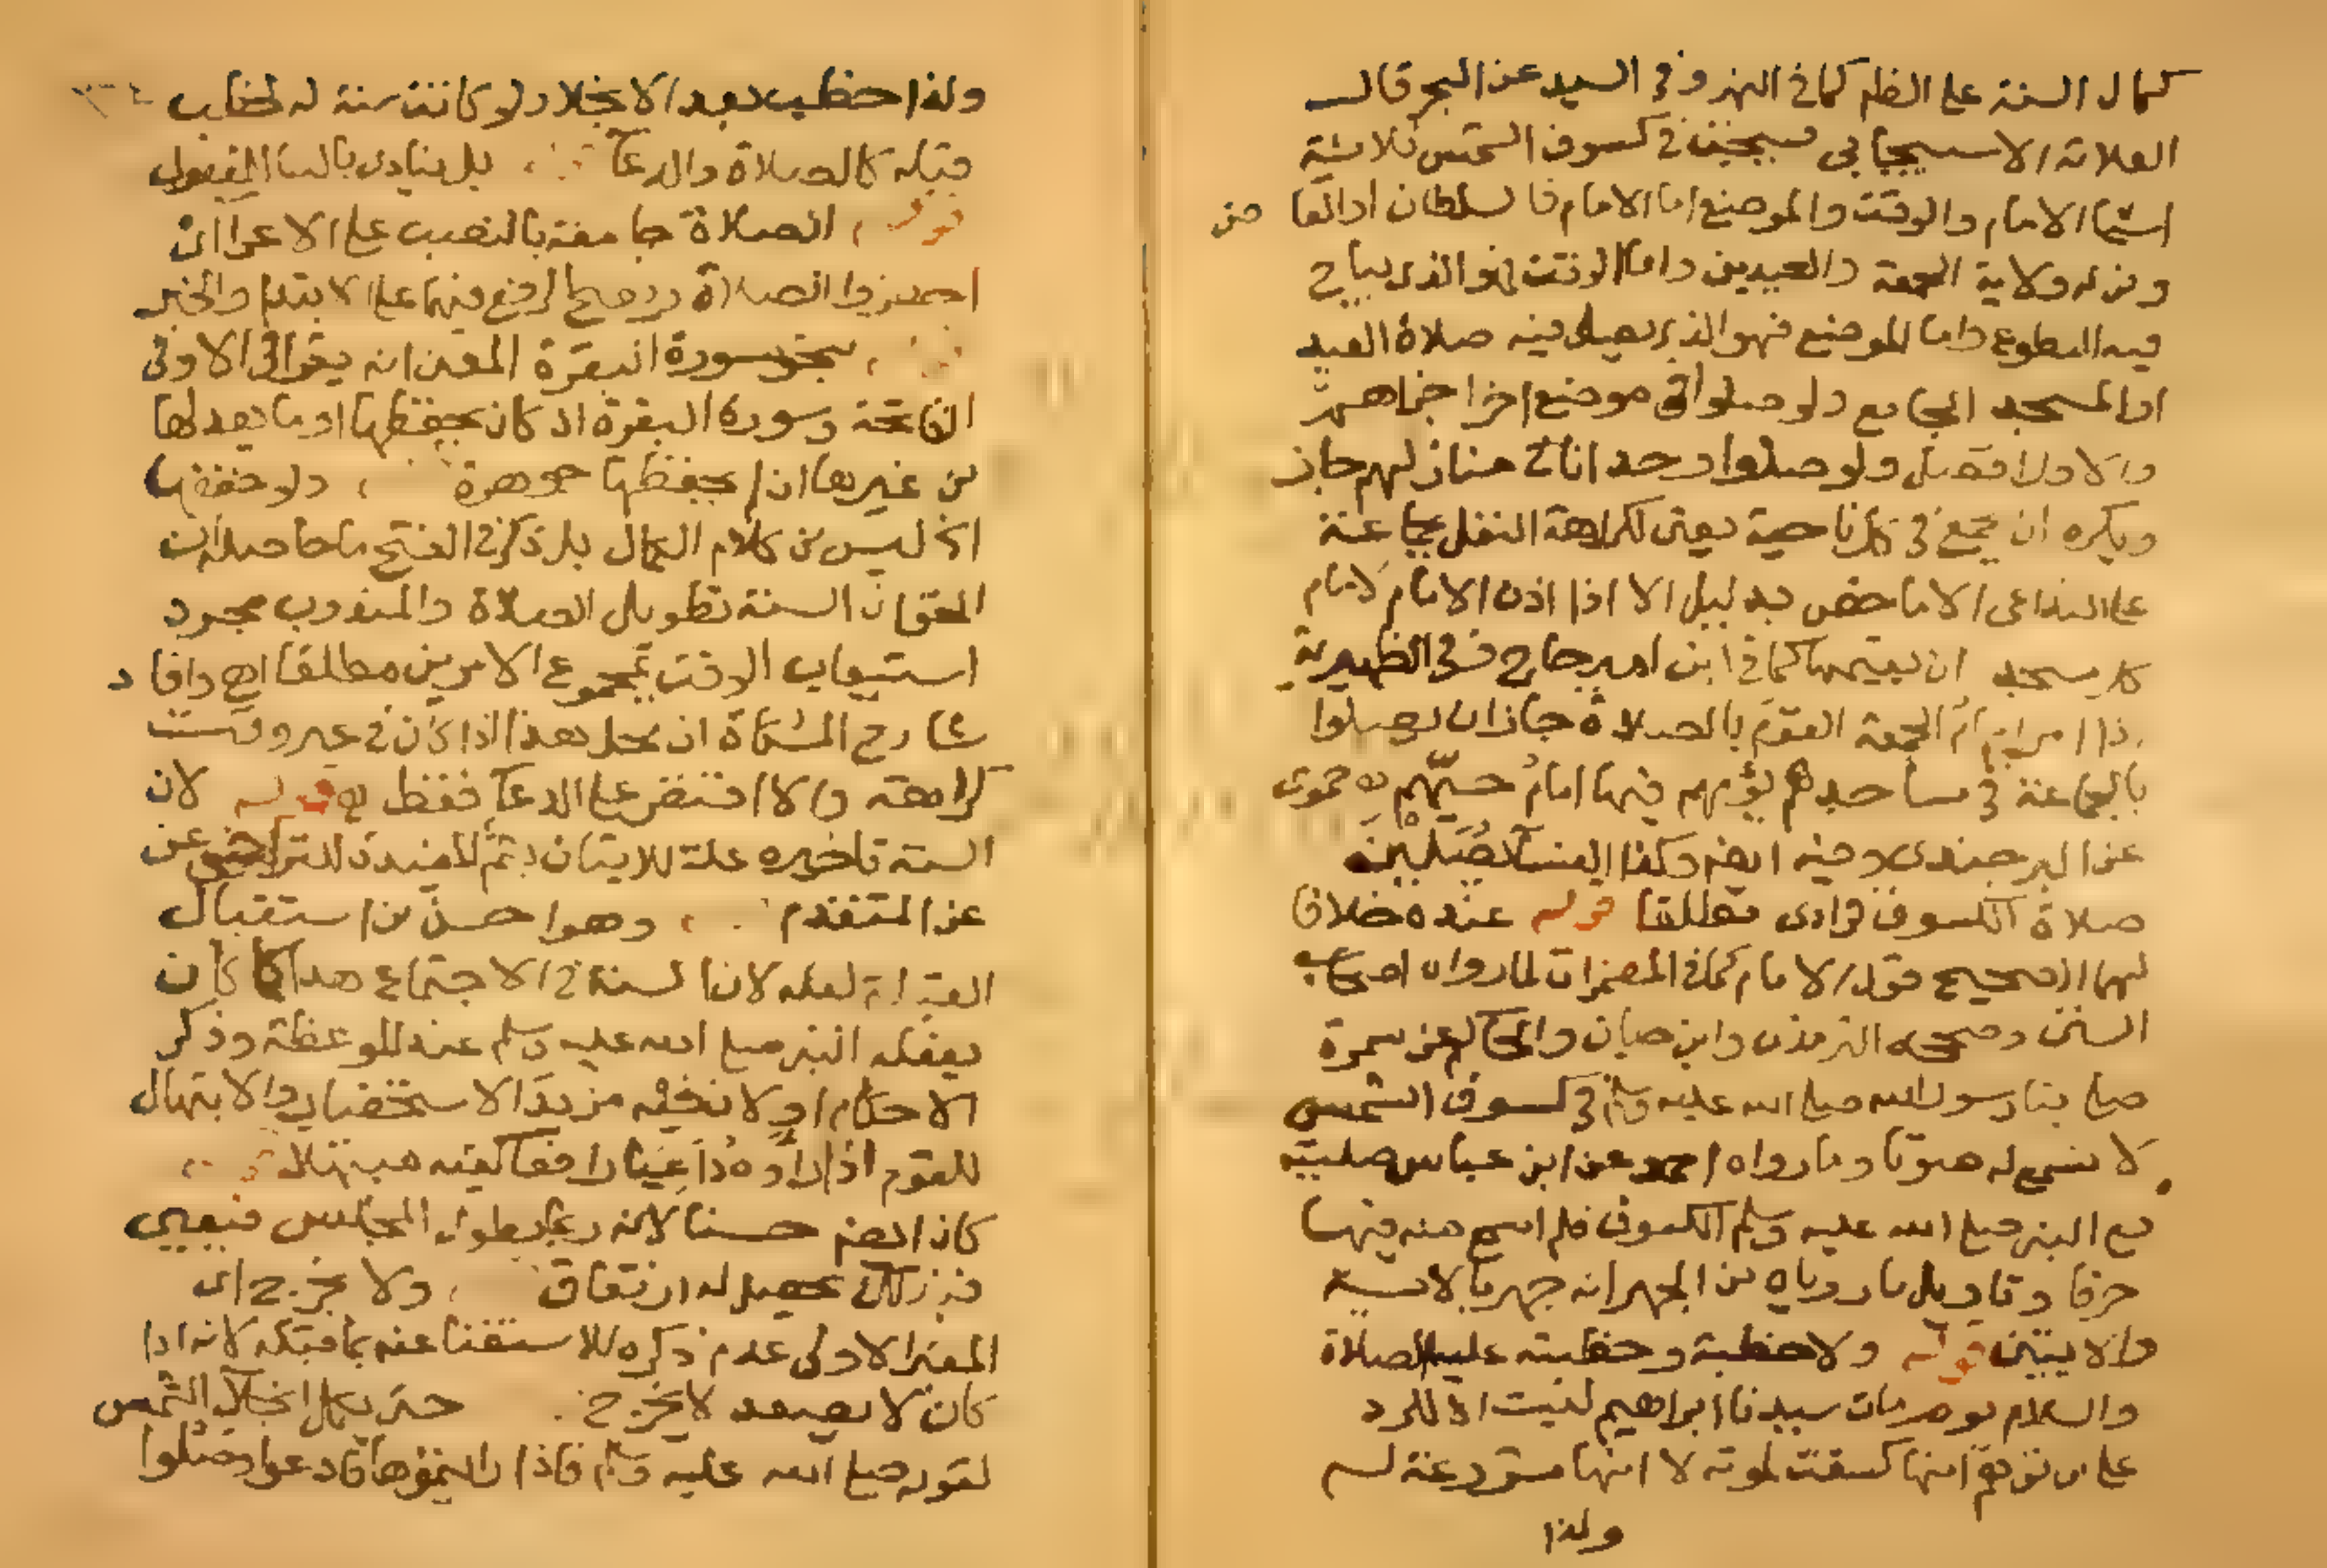 كمال السنة على الظلم كما في النهر وفي السيد عن البحر قال
العلامة الاسبيجابي يستحب في كسوف الشمس ثلاثة
اشيا الامام والوقت والموضع اما الامام فالسلطان او القا ضى
ومن له ولاية الجمعة والعيدين واما الوقت فهو الذى يباح
فيه التطوع واما الموضع فهو الذى يصلى فيه صلاة العيد
او المسجد الجامع ولو صلوا فى موضع اخر اجزاهم
والاول افضل ولو صلوا وحدانا فى منازلهم جاز
ويكره ان يجمع فى كل ناحية يعنى لكراهة النفل بجماعة
على التداعى الا ما خص بدليل الا اذا اذن الامام لامام
كل مسجد ان يقيمها كما فى ابن امير حاج وفى الظهيرية
اذا امرهم امام الجمعة القوم بالصلاة جاز ان يصلوا
بالجماعة فى مساجدهم يؤمهم فيها امام حيهم اه حموى
عن البرجندى وفيه ايضا وكذا النساء يصلين
صلاة الكسوف فرادى مطلقا قوله عنده خلافا
لهما الصحيح قول الامام كما فى المضمرات لما رواه اصحاب
السنن وصححه الترمذى وابن حبان والحاكم عن سمرة
صلى بنا رسول الله صلى الله عليه وسلم فى كسوف الشمس
لا نسمع له صوتا وما رواه احمد عن ابن عباس صليت
مع النبى صلى الله عليه وسلم الكسوف فلم اسمع منه فيها
حرفا وتاويل ما روياه من الجهر انه جهر بالاية
والايتين قوله ولا خطبة وخطبته عليه الصلاة
والسلام يوم مات سيدنا ابراهيم ليست الا للرد
على من توهم انها كسفت لموته لا انها مشروعة له
ولذا
ولذا خطب بعد الانجلا ولو كانت سنة له لخطب
قبله كالصلاة والدعا بل ينادى بالبنا للمفعول
قوله الصلاة جامعة بالنصب على الاغرا اى
احضروا الصلاة ويصح الرفع فيهما على الابتدا والخبر
بنحو سورة البقرة المعنى انه يقرا فى الاولى
الفاتحة وسورة البقرة ان كان يحفظها او ما يعدلها
من غيرها ان لم يحفظها جوهرة ولو خففها
الخ ليس من كلام الكمال بل ذكر فى الفتح ما حاصله ان
الحق ان السنة تطويل الصلاة والمندوب مجرد
استيعاب الوقت بمجموع الامرين مطلقا اه وافا د
شارح المشكاة ان محل هذا اذا كان فى غير وقت
كراهة والا اقتصر على الدعا فقط اه قوله لان
السنة تاخيره علة للاتيان بثم المفيدة للتراخى عن
عن المتقدم وهو احسن من استقبال
القبلة لعله لان السنة فى الاجتماع هذا كما كان
يفعله النبى صلى الله عليه وسلم عند الموعظة وذكر
الاحكام او لان فيه مزيد الاستحضار والابتهال
للقوم اذا راوه داعيا رافعا كفيه مبتهلا
كان ايضا حسنا لانه ربما يطول المجلس فيعيى
فبذلك يحصل له ارتفاق ولا يخرج اى
المنبر الاولى عدم ذكره للاستغنا عنه بما قبله لانه اذا
كان لا يصعد لا يخرج حتى يكمل انجلا الشمس
لقوله صلى الله عليه وسلم فاذا رايتموها فادعوا وصلوا